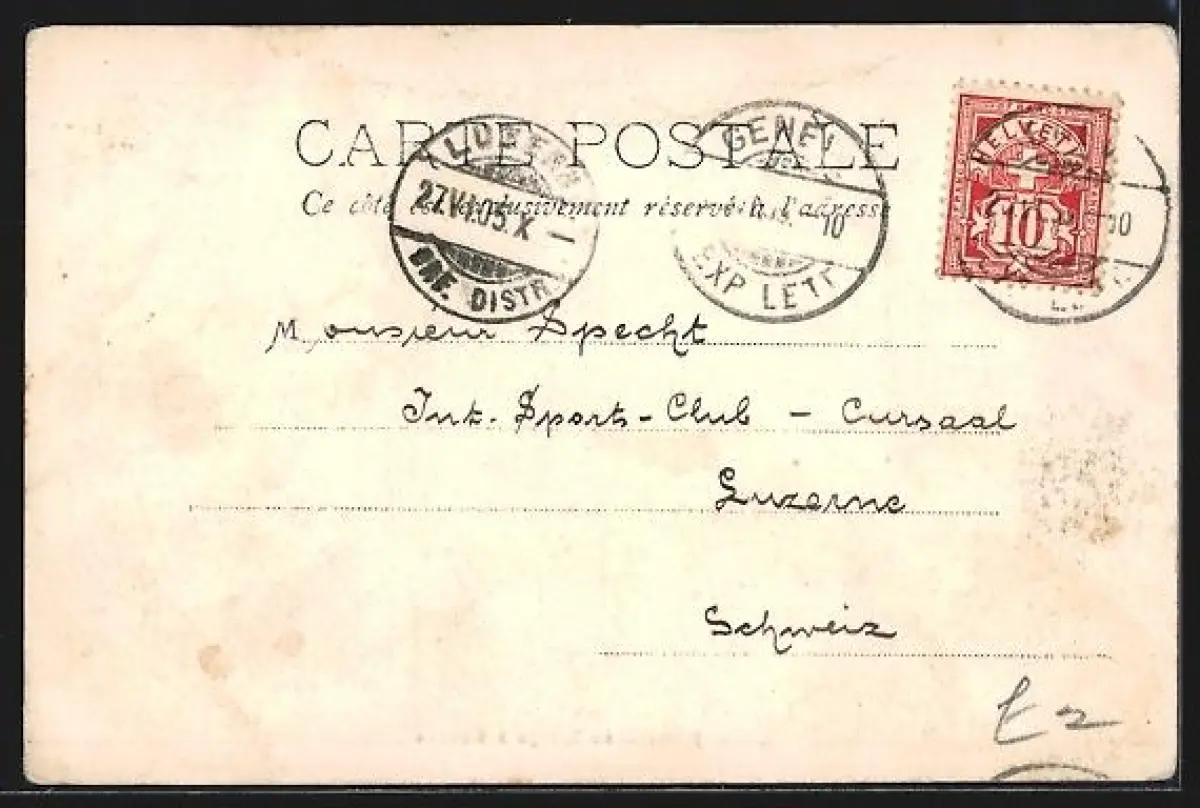 CARTE POSTALE
Ce côté est exclusivement réservé à l'adresse
LUZERN
27.VI.05.X
DISTR
GENÈV
10
EXP LETT
HELVETIA
10
Monsieur Specht
Int. Sport-Club - Cursaal
Luzerne
Schweiz